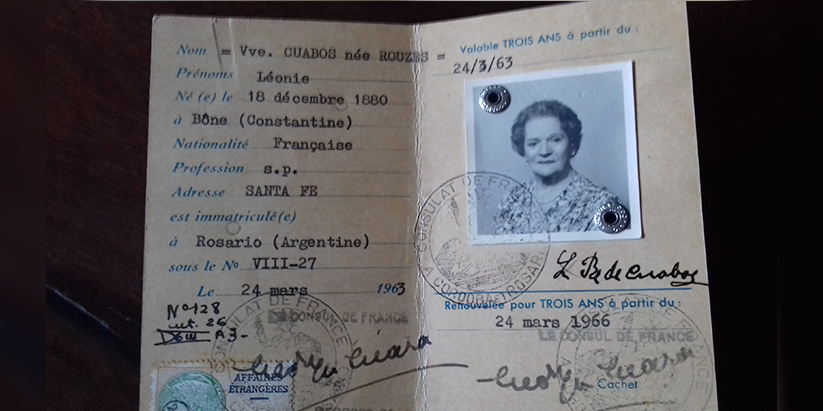 Nom = Vve. CUABOS née ROUZES =
Prénoms Léonie
Né(e) le 18 décembre 1880
à Bône (Constantine)
Nationalité Française
Profession s.p.
Adresse SANTA FE
est immatriculé(e)
à Rosario (Argentine)
sous le No VIII-27
Le 24 mars 1963
No 128
A3-
CONSULAT DE FRANCE
LE CONSUL DE FRANCE
AFFAIRES
ÉTRANGÈRES
Valable TROIS ANS à partir du :
24/3/63
CONSULAT DE FRANCE
A CORDOBA ROSARIO
Renouvelée pour TROIS ANS à partir du :
24 mars 1966
LE CONSUL DE FRANCE
Cachet